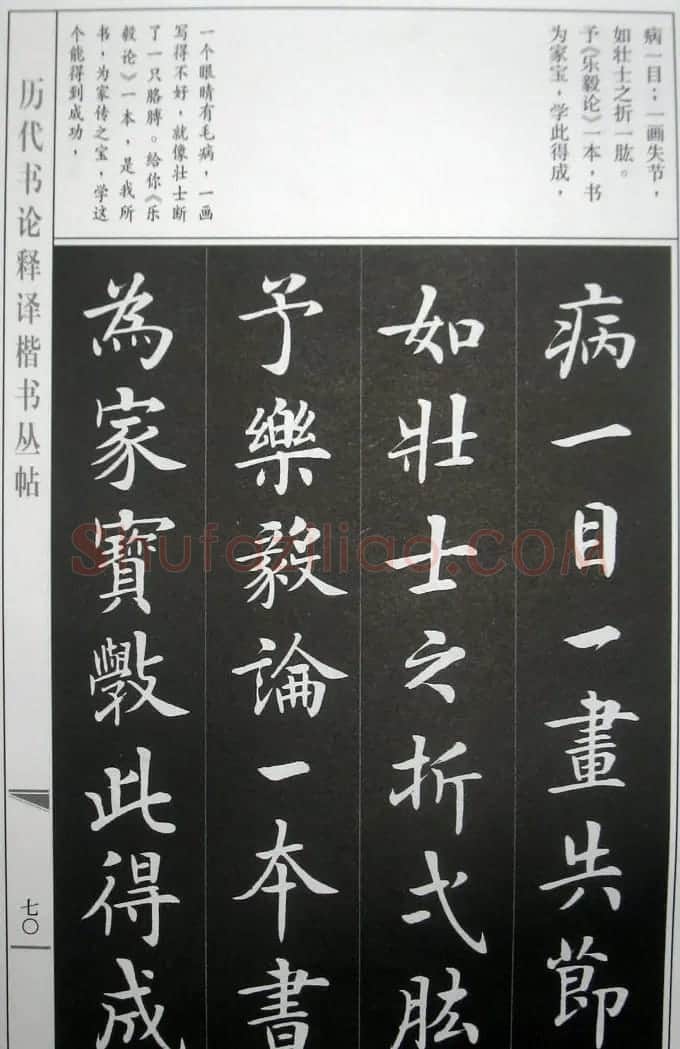 病一目；一画失节，
如壮士之折一肱。
予《乐毅论》一本，书
为家宝，学此得成，
一个眼睛有毛病，一画
写得不好，就像壮士断
了一只胳膊。给你《乐
毅论》一本，是我所
书，为家传之宝，学这
个能得到成功，
病一目一畫失節
如壯士之折弍肱
予樂毅論一本書
為家寶斆此得成
历代书论释译楷书丛帖
七〇
Shufaziliao.COM